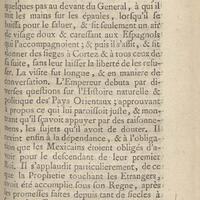 quelques pas au devant du General, à qui il
mit les mains sur les épaules, lorsqu'il se
baissa pour le saluer, & fit seulement un air
de visage doux & caressant aux Espagnols
qui l'accompagnoient; & puis il s'assit, & fit
donner des sieges à Cortez & à tous ceux de
sa suite, sans leur laisser la liberté de les re-
fuser. La visite fut longue, & en maniere de
conversation. L'Empereur debuta par di-
verses questions sur l'Histoire naturelle &
politique des Pays Orientaux; approuvant
à propos ce qui lui paroissoit juste, & mon-
trant qu'il sçavoit appuyer par des raisonne-
mens, les sujets qu'il avoit de douter. Il
vint enfin à la dépendance, & à l'obliga-
tion que les Mexicains étoient obligés d'a-
voir pour le defendant de leur premier
Roi. Il s'applaudit particulierement, de ce
que la Prophetie touchant les Etrangers,
avoit été accomplie sous son Regne, après
les promesses faites depuis tant de siecles à